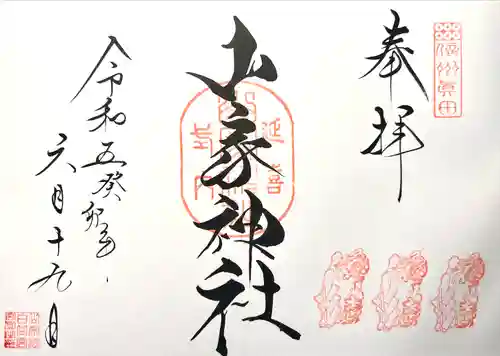 信州眞田
奉拝
山家神社
延喜
式内
令和五癸卯年
六月十九日